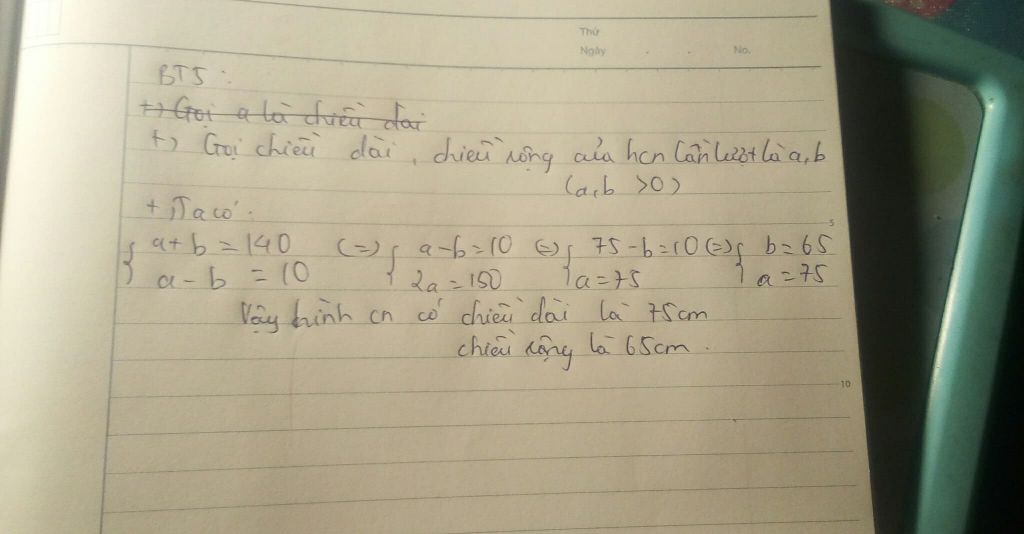 Thứ
Ngày . . No.
BT5 :
+) Gọi a là chiều dài
+) Gọi chiều dài, chiều rộng của hcn lần lượt là a, b
(a,b >0)
+) Ta có:
{ a + b = 140 (=) { a - b = 10 (=) { 75 - b = 10 (=) { b = 65
a - b = 10 2a = 150 a = 75 a = 75
Vậy hình cn có chiều dài là 75cm
chiều rộng là 65cm.
5
10